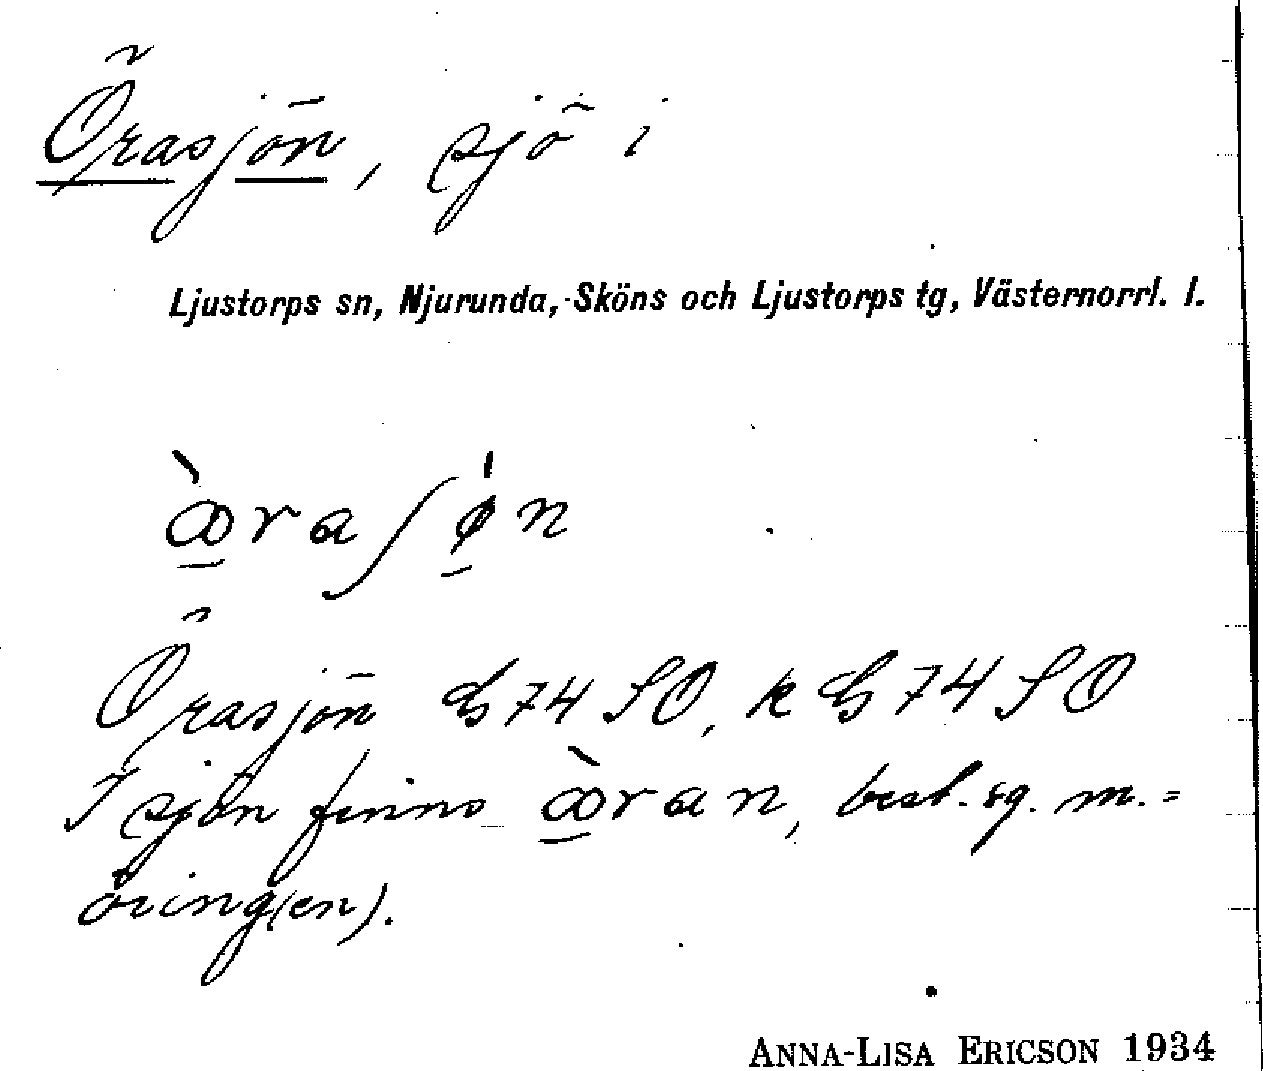 Örasjön, sjö i
Ljustorps sn, Njurunda, Sköns och Ljustorps tg, Västernorrl. l.
æ̠̀raʃǿ̠n
Örasjön G 74 SO, k G 74 SO
I sjön finns æ̠̀ran, best. sg. m. =
öring(en).
ANNA-LISA ERICSON 1934